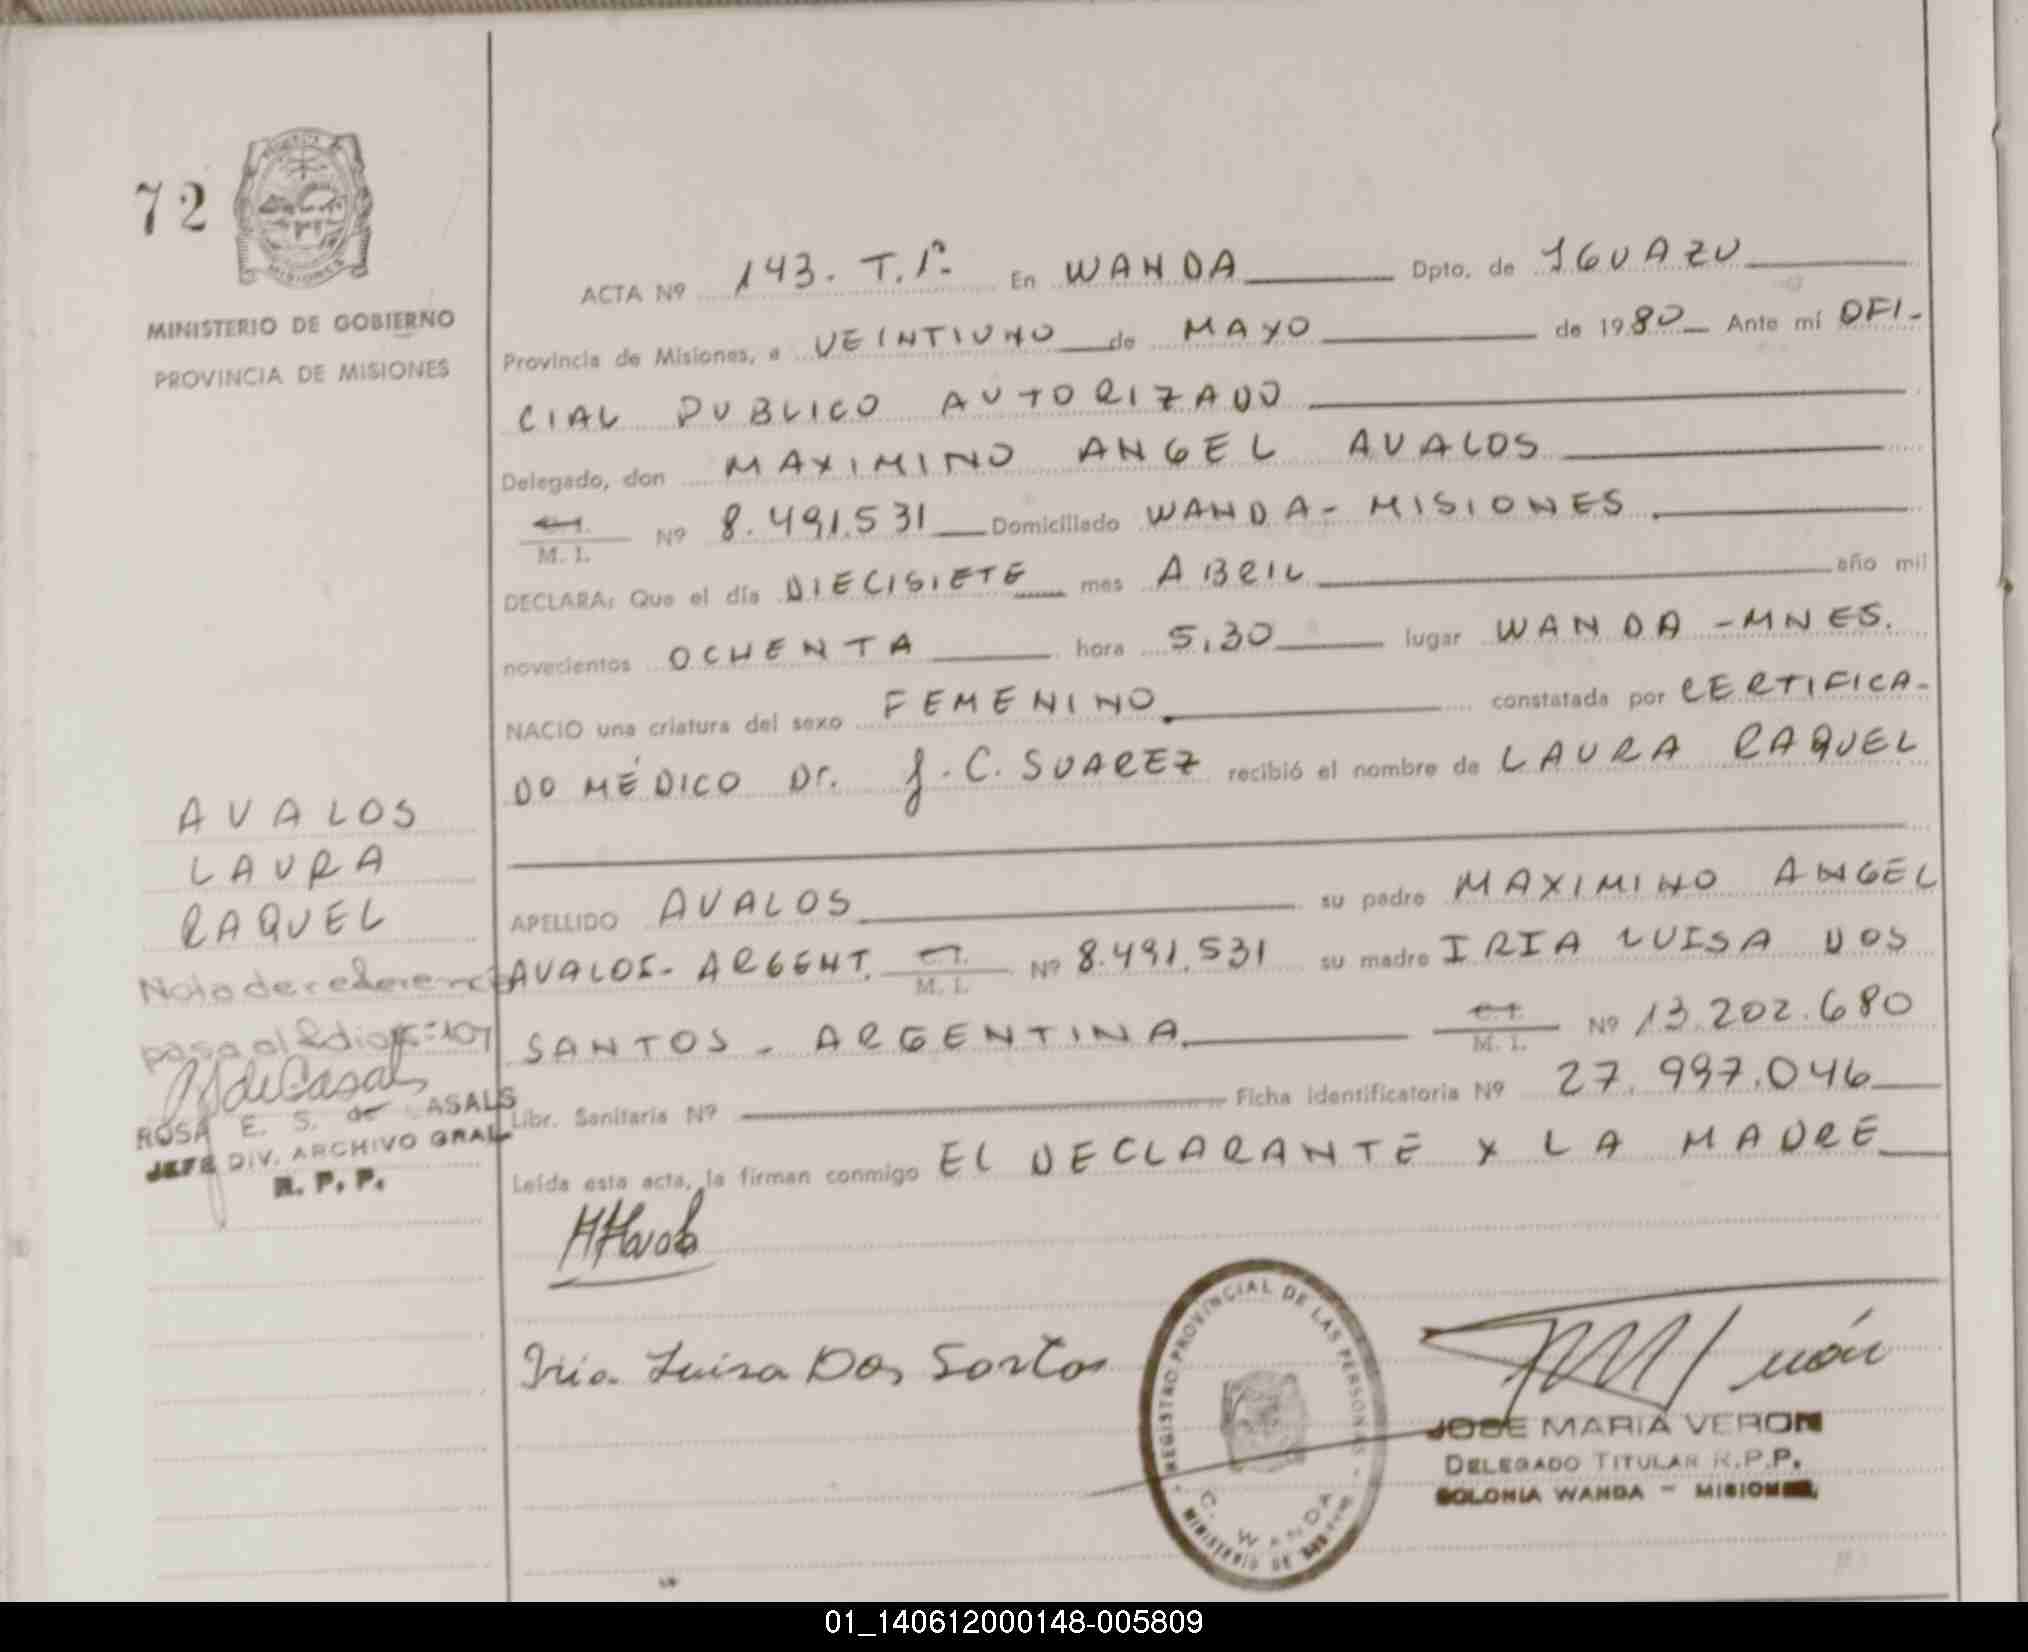 72
MINISTERIO DE GOBIERNO
PROVINCIA DE MISIONES
ACTA Nº 143. T.1º. En WANDA Dpto. de IGUAZU
Provincia de Misiones, a VEINTIUNO de MAYO de 1980 Ante mí OFI-
CIAL PUBLICO AUTORIZADO
Delegado, don MAXIMINO ANGEL AVALOS
C.I.
M. I. Nº 8.491.531 Domiciliado WANDA - MISIONES.
DECLARA: Que el día DIECISIETE mes ABRIL año mil
novecientos OCHENTA hora 5,30 lugar WANDA - MNES.
NACIO una criatura del sexo FEMENINO. constatada por CERTIFICA-
DO MÉDICO Dr. J. C. SUAREZ recibió el nombre de LAURA RAQUEL
APELLIDO AVALOS su padre MAXIMINO ANGEL
AVALOS - ARGENT. C.I.
M. I. Nº 8.491.531 su madre IRIA LUISA DOS
SANTOS - ARGENTINA. C.I.
M. I. Nº 13.202.680
Libr. Sanitaria Nº Ficha identificatoria Nº 27.997.046
Leída esta acta, la firman conmigo EL DECLARANTE Y LA MADRE
AVALOS
LAURA
RAQUEL
Nota de referencia
pasa al folio 107
ROSA E. S. de CASALS
JEFE DIV. ARCHIVO GRAL.
R. P. P.
Iria Luisa Dos Santos
REGISTRO PROVINCIAL DE LAS PERSONAS
C. WANDA
MINISTERIO DE
JOSE MARIA VERON
DELEGADO TITULAR R.P.P.
COLONIA WANDA - MISIONES
01_140612000148-005809